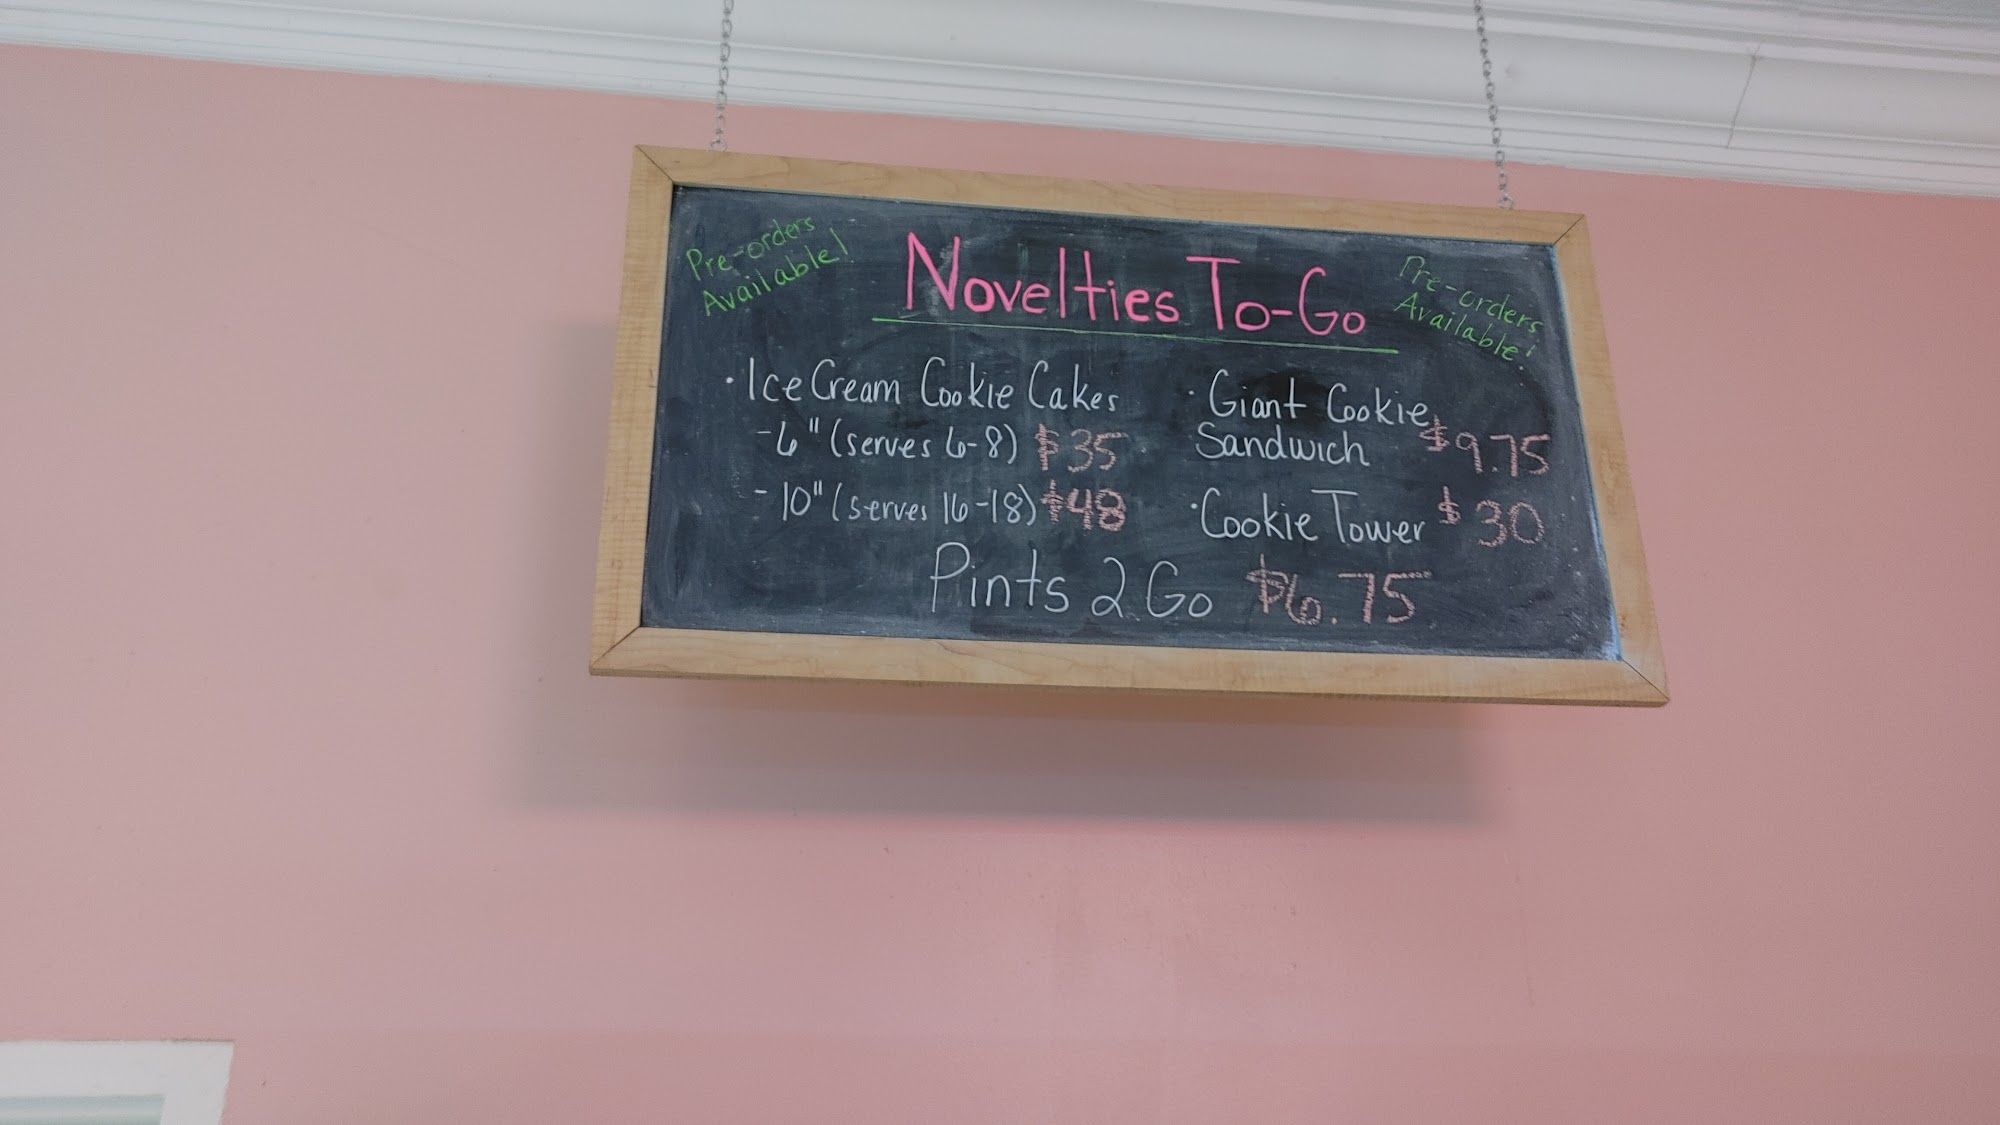 Pre-orders
Available!
Novelties To-Go
Pre-orders
Available!
· Ice Cream Cookie Cakes
- 6" (serves 6-8) $35
- 10" (serves 16-18) $48
· Giant Cookie
Sandwich $9.75
· Cookie Tower $30
Pints 2 Go $6.75